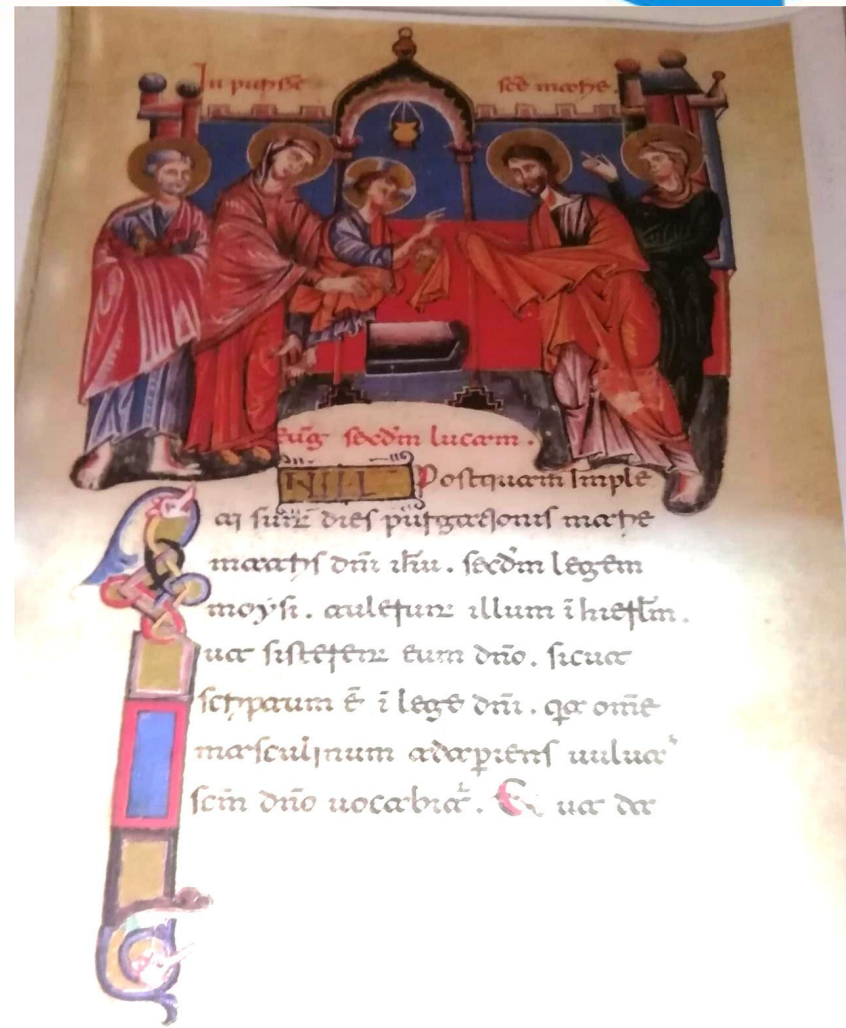 In sc̅e marie.
eug̅ secd̅m lucam.
IN ILL Postquam Imple
ti sunt dies purgationis marie
matris dn̅i ih̅u. secd̅m legem
moysi. tulerunt illum i̅ hierl̅m.
ut sisterent eum dn̅o. sicut
scriptum e̅ i̅ lege dn̅i. qa om̅e
masculinum adap̱iens uulua̅
sc̅m dn̅o uocabit̅. Et ut da